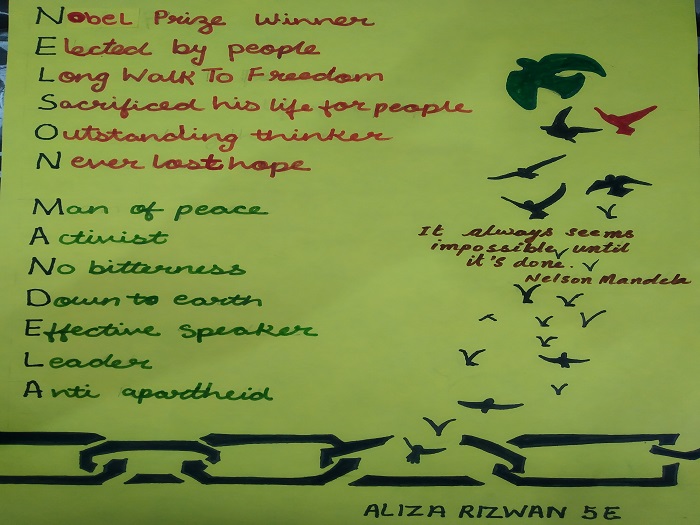 NobeL Prize Winner
Elected by people
Long Walk To Freedom
Sacrificed his life for people
Outstanding thinker
Never lost hope
Man of peace
Activist
No bitterness
Down to earth
Effective speaker
Leader
Anti apartheid
It always seems
impossible, until
it's done.
Nelson Mandela
ALIZA RIZWAN 5E